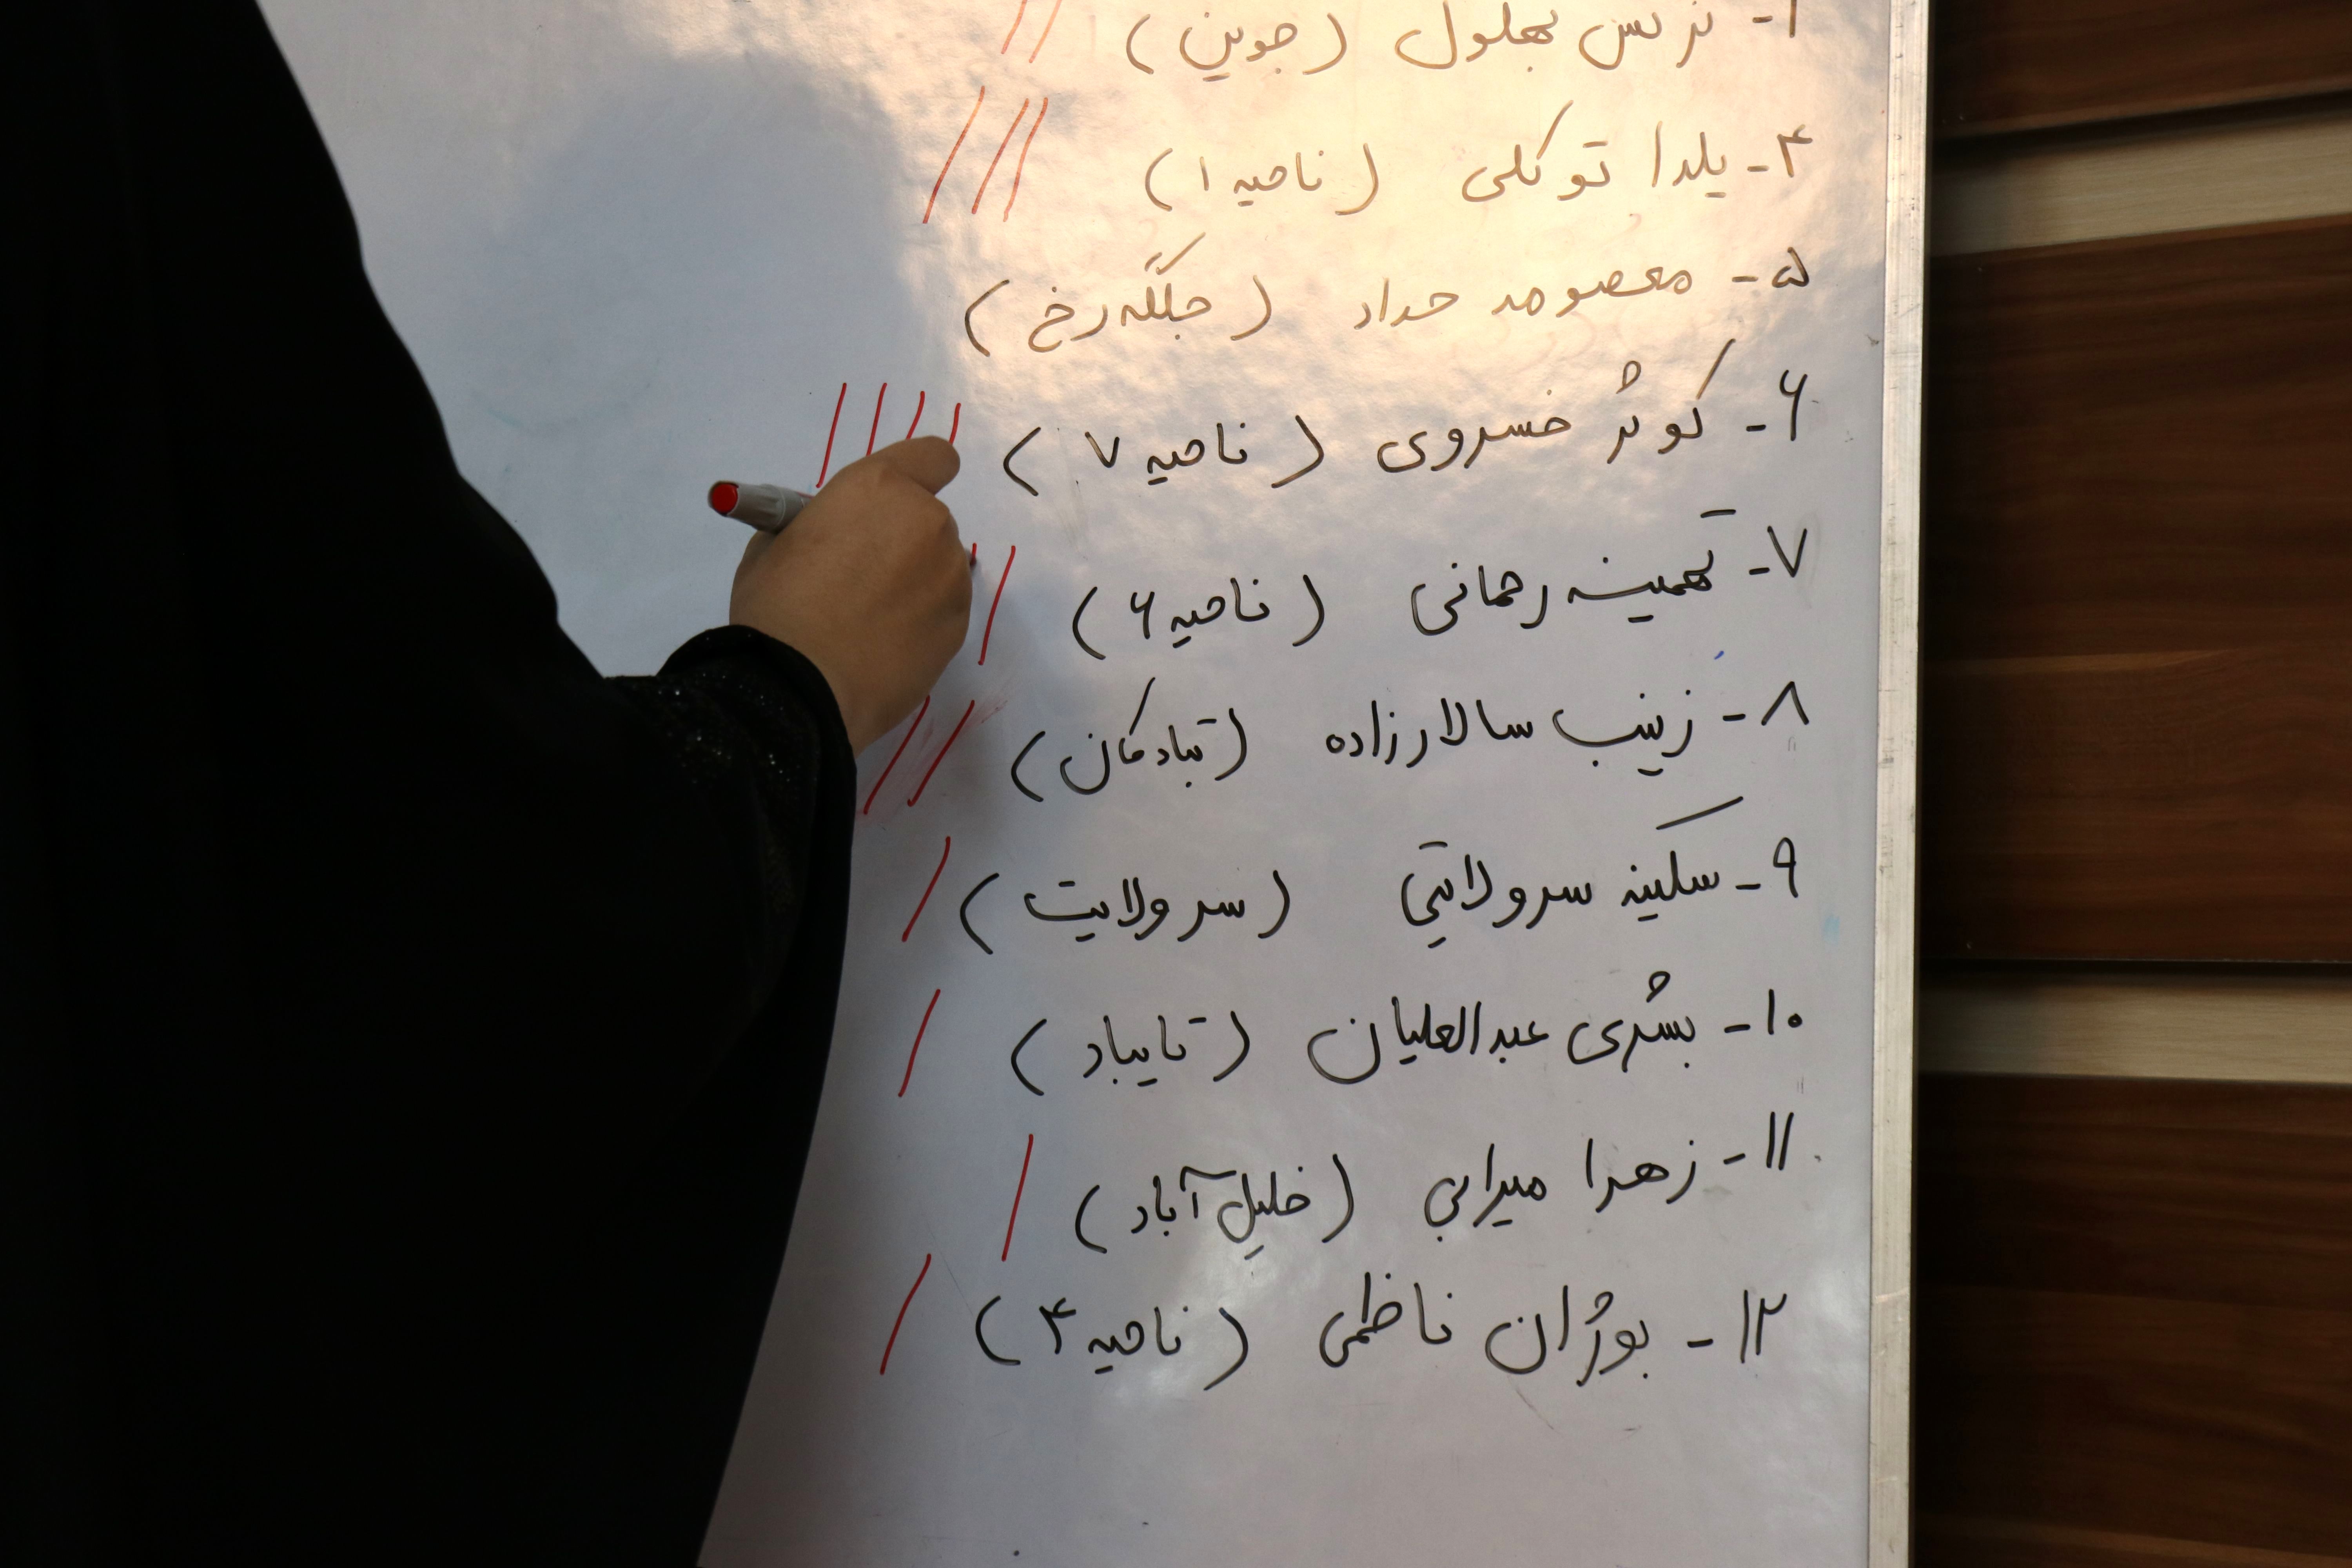 نرگس بهلول (جوین)
۴- یلدا توکلی (ناحیه ۱)
۵- معصومه حداد (جلگه رخ)
۶- کوثر خسروی (ناحیه ۷)
۷- تهمینه رحمانی (ناحیه ۶)
۸- زینب سالارزاده (تبادکان)
۹- سکینه سرولاتی (سرولایت)
۱۰- بشری عبدالعلیان (تایباد)
۱۱- زهرا میرابی (خلیل آباد)
۱۲- پوژان ناظمی (ناحیه ۴)